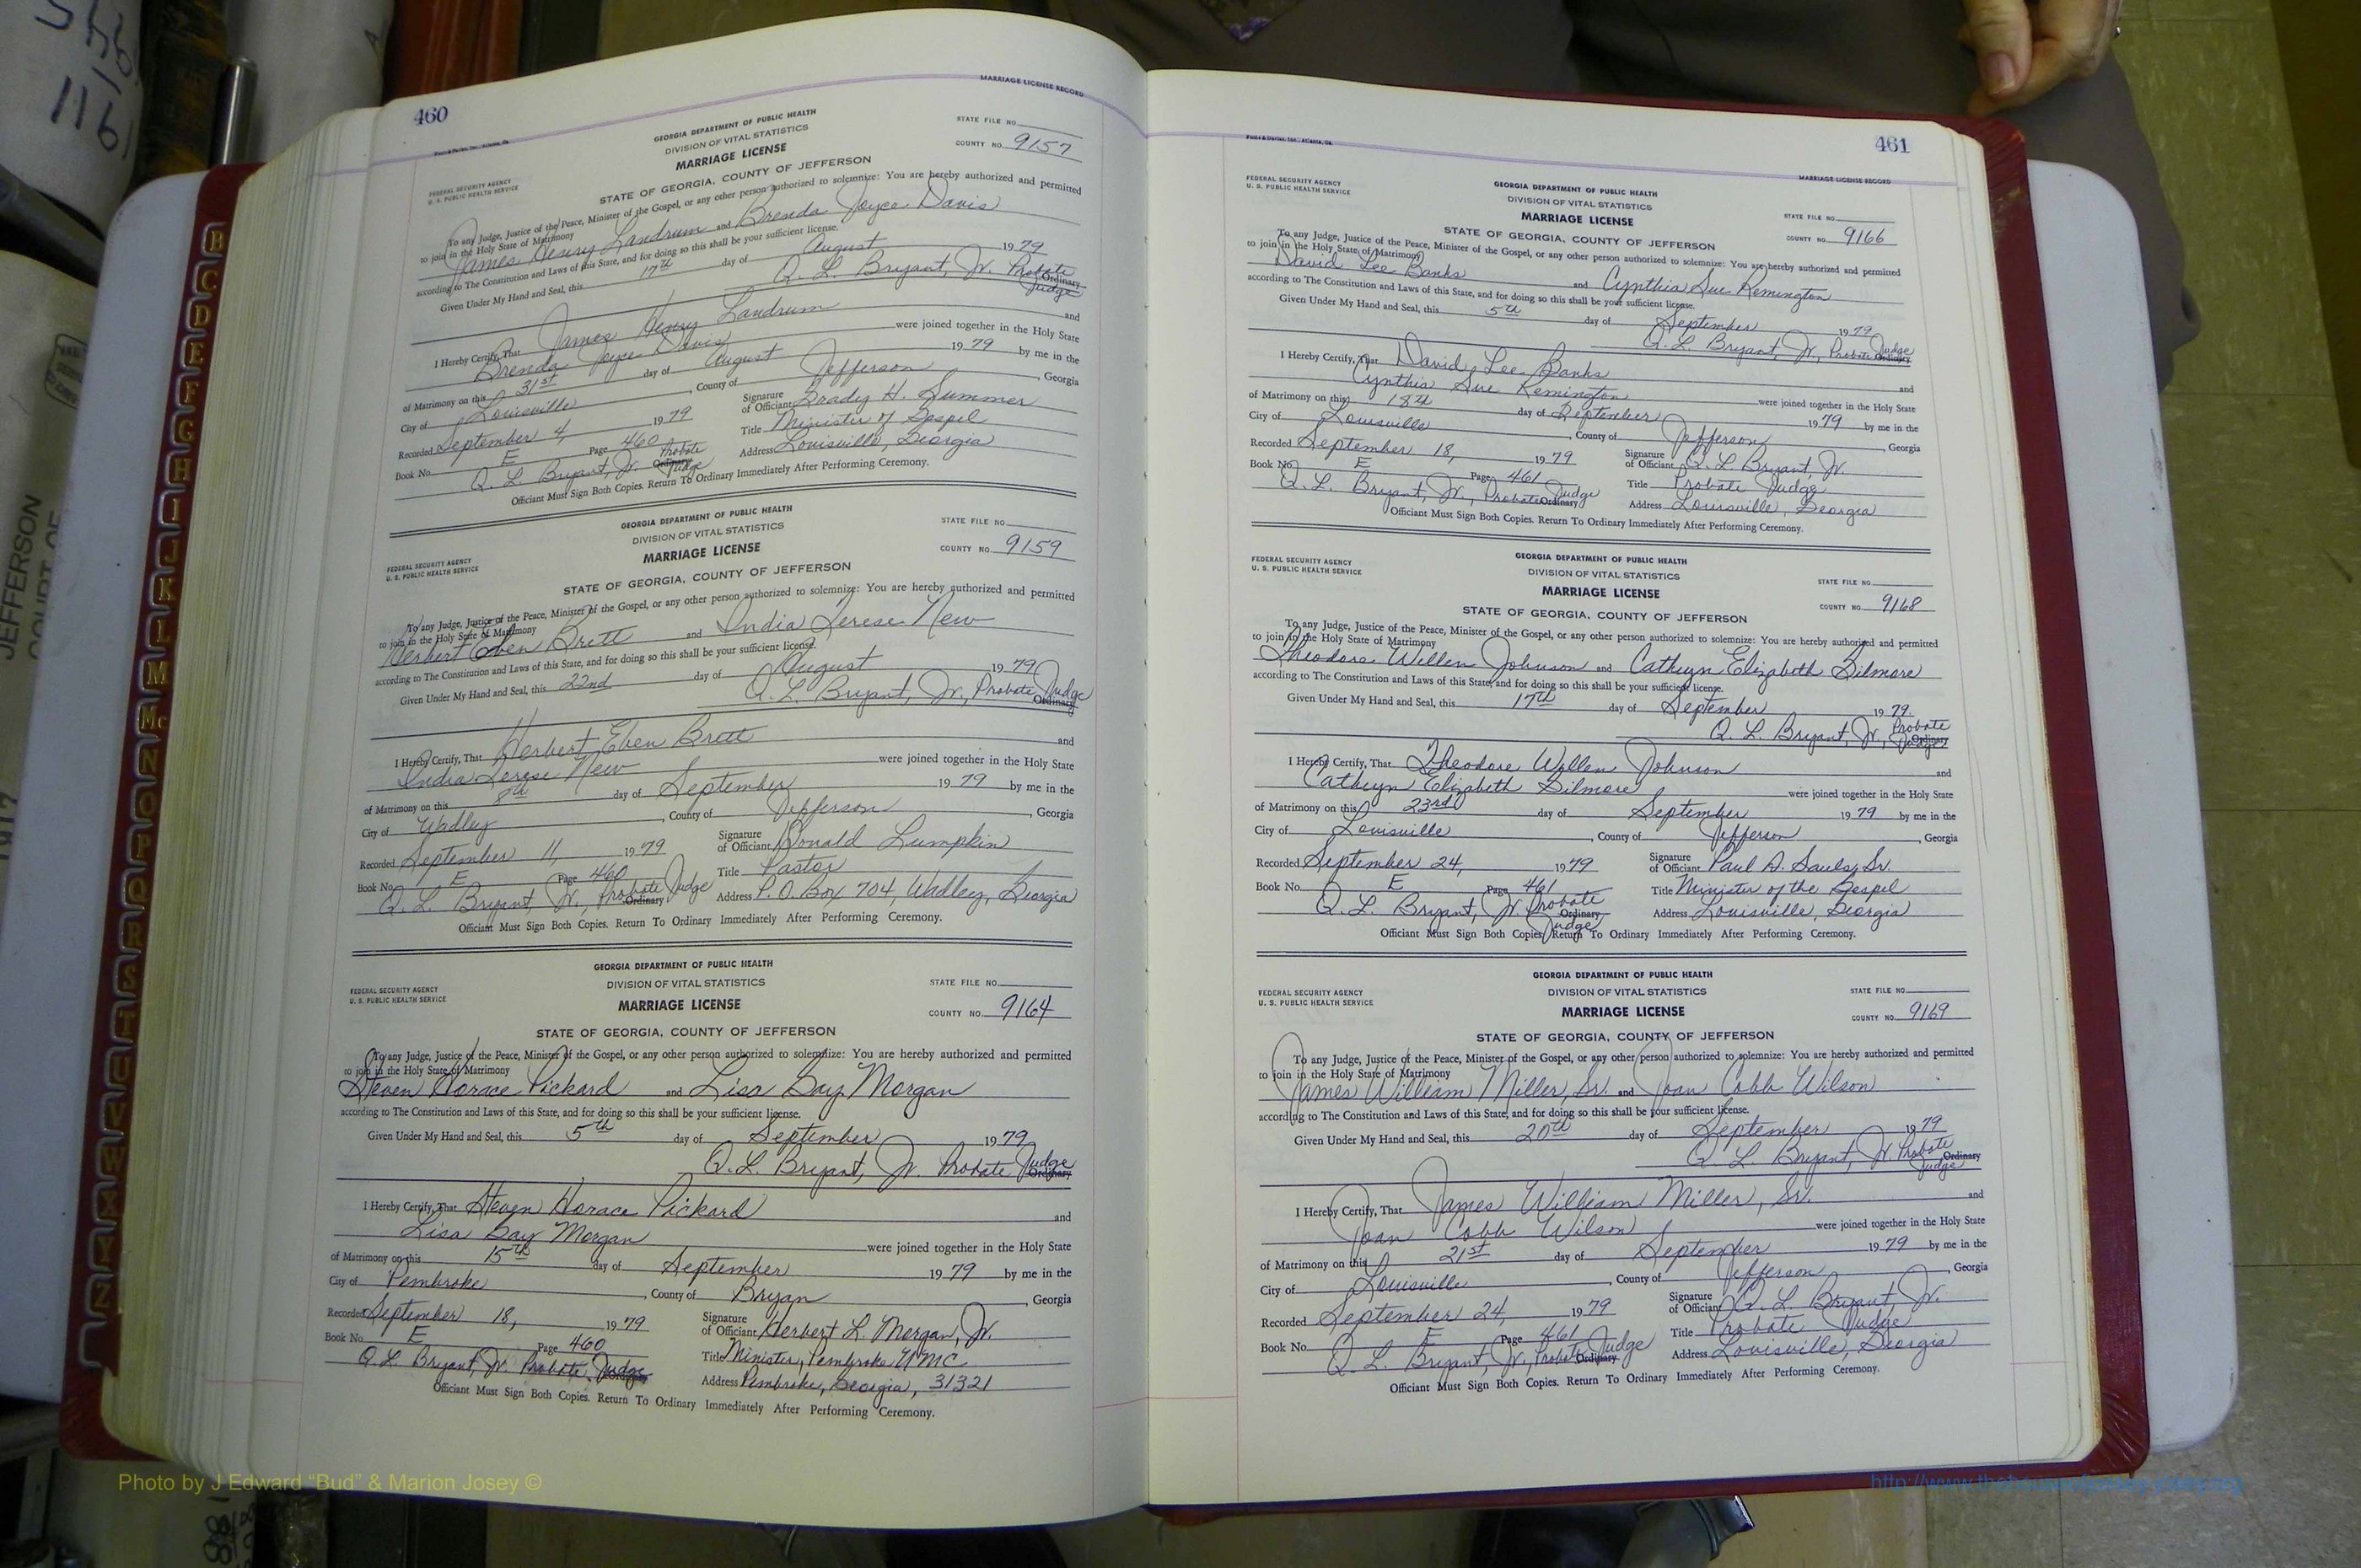 460
MARRIAGE LICENSE RECORD
GEORGIA DEPARTMENT OF PUBLIC HEALTH
DIVISION OF VITAL STATISTICS
MARRIAGE LICENSE
STATE OF GEORGIA, COUNTY OF JEFFERSON
STATE FILE NO.
COUNTY NO. 9157
FEDERAL SECURITY AGENCY
U. S. PUBLIC HEALTH SERVICE
To any Judge, Justice of the Peace, Minister of the Gospel, or any other person authorized to solemnize: You are hereby authorized and permitted
to join in the Holy State of Matrimony
James Henry Landrum and Brenda Joyce Davis
according to The Constitution and Laws of this State, and for doing so this shall be your sufficient license.
Given Under My Hand and Seal, this 17th day of August 1979
Q. L. Bryant, Jr. Probate Ordinary Judge
I Hereby Certify, That James Henry Landrum and
Brenda Joyce Davis were joined together in the Holy State
of Matrimony on this 31st day of August 1979 by me in the
City of Louisville, County of Jefferson, Georgia
Recorded September 4, 1979 Signature of Officiant Grady H. Summer
Book No. E Page 460 Title Minister of Gospel
Q. L. Bryant, Jr. Probate Ordinary Judge Address Louisville, Georgia
Officiant Must Sign Both Copies. Return To Ordinary Immediately After Performing Ceremony.
GEORGIA DEPARTMENT OF PUBLIC HEALTH
DIVISION OF VITAL STATISTICS
MARRIAGE LICENSE
STATE OF GEORGIA, COUNTY OF JEFFERSON
STATE FILE NO.
COUNTY NO. 9159
FEDERAL SECURITY AGENCY
U. S. PUBLIC HEALTH SERVICE
To any Judge, Justice of the Peace, Minister of the Gospel, or any other person authorized to solemnize: You are hereby authorized and permitted
to join in the Holy State of Matrimony
Herbert Eben Brett and India Terese New
according to The Constitution and Laws of this State, and for doing so this shall be your sufficient license.
Given Under My Hand and Seal, this 22nd day of August 1979
Q. L. Bryant, Jr., Probate Judge Ordinary
I Hereby Certify, That Herbert Eben Brett and
India Terese New were joined together in the Holy State
of Matrimony on this 8th day of September 1979 by me in the
City of Wadley, County of Jefferson, Georgia
Recorded September 11, 1979 Signature of Officiant Donald Lumpkin
Book No. E Page 460 Title Pastor
Q. L. Bryant, Jr., Probate Judge Ordinary Address P. O. Box 704, Wadley, Georgia
Officiant Must Sign Both Copies. Return To Ordinary Immediately After Performing Ceremony.
GEORGIA DEPARTMENT OF PUBLIC HEALTH
DIVISION OF VITAL STATISTICS
MARRIAGE LICENSE
STATE OF GEORGIA, COUNTY OF JEFFERSON
STATE FILE NO.
COUNTY NO. 9164
FEDERAL SECURITY AGENCY
U. S. PUBLIC HEALTH SERVICE
To any Judge, Justice of the Peace, Minister of the Gospel, or any other person authorized to solemnize: You are hereby authorized and permitted
to join in the Holy State of Matrimony
Steven Horace Pickard and Lisa Gay Morgan
according to The Constitution and Laws of this State, and for doing so this shall be your sufficient license.
Given Under My Hand and Seal, this 5th day of September 1979
Q. L. Bryant, Jr. Probate Judge Ordinary
I Hereby Certify, That Steven Horace Pickard and
Lisa Gay Morgan were joined together in the Holy State
of Matrimony on this 15th day of September 1979 by me in the
City of Pembroke, County of Bryan, Georgia
Recorded September 18, 1979 Signature of Officiant Herbert L. Morgan, Jr.
Book No. E Page 460 Title Minister, Pembroke UMC
Q. L. Bryant, Jr. Probate Judge Address Pembroke, Georgia, 31321
Officiant Must Sign Both Copies. Return To Ordinary Immediately After Performing Ceremony.
461
MARRIAGE LICENSE RECORD
FEDERAL SECURITY AGENCY
U. S. PUBLIC HEALTH SERVICE
GEORGIA DEPARTMENT OF PUBLIC HEALTH
DIVISION OF VITAL STATISTICS
MARRIAGE LICENSE
STATE OF GEORGIA, COUNTY OF JEFFERSON
STATE FILE NO.
COUNTY NO. 9166
To any Judge, Justice of the Peace, Minister of the Gospel, or any other person authorized to solemnize: You are hereby authorized and permitted
to join in the Holy State of Matrimony
David Lee Banks and Cynthia Sue Remington
according to The Constitution and Laws of this State, and for doing so this shall be your sufficient license.
Given Under My Hand and Seal, this 5th day of September 1979
Q. L. Bryant, Jr., Probate Judge Ordinary
I Hereby Certify, That David Lee Banks and
Cynthia Sue Remington were joined together in the Holy State
of Matrimony on this 18th day of September 1979 by me in the
City of Louisville, County of Jefferson, Georgia
Recorded September 18, 1979 Signature of Officiant Q. L. Bryant, Jr.
Book No. E Page 461 Title Probate Judge
Q. L. Bryant, Jr., Probate Judge Ordinary Address Louisville, Georgia
Officiant Must Sign Both Copies. Return To Ordinary Immediately After Performing Ceremony.
FEDERAL SECURITY AGENCY
U. S. PUBLIC HEALTH SERVICE
GEORGIA DEPARTMENT OF PUBLIC HEALTH
DIVISION OF VITAL STATISTICS
MARRIAGE LICENSE
STATE OF GEORGIA, COUNTY OF JEFFERSON
STATE FILE NO.
COUNTY NO. 9168
To any Judge, Justice of the Peace, Minister of the Gospel, or any other person authorized to solemnize: You are hereby authorized and permitted
to join in the Holy State of Matrimony
Theodore Willen Johnson and Cathryn Elizabeth Gilmore
according to The Constitution and Laws of this State, and for doing so this shall be your sufficient license.
Given Under My Hand and Seal, this 17th day of September 1979
Q. L. Bryant, Jr., Probate Ordinary Judge
I Hereby Certify, That Theodore Willen Johnson and
Cathryn Elizabeth Gilmore were joined together in the Holy State
of Matrimony on this 23rd day of September 1979 by me in the
City of Louisville, County of Jefferson, Georgia
Recorded September 24, 1979 Signature of Officiant Paul A. Sauls, Sr.
Book No. E Page 461 Title Minister of the Gospel
Q. L. Bryant, Jr. Probate Ordinary Judge Address Louisville, Georgia
Officiant Must Sign Both Copies. Return To Ordinary Immediately After Performing Ceremony.
FEDERAL SECURITY AGENCY
U. S. PUBLIC HEALTH SERVICE
GEORGIA DEPARTMENT OF PUBLIC HEALTH
DIVISION OF VITAL STATISTICS
MARRIAGE LICENSE
STATE OF GEORGIA, COUNTY OF JEFFERSON
STATE FILE NO.
COUNTY NO. 9169
To any Judge, Justice of the Peace, Minister of the Gospel, or any other person authorized to solemnize: You are hereby authorized and permitted
to join in the Holy State of Matrimony
James William Miller, Sr. and Joan Cobb Wilson
according to The Constitution and Laws of this State, and for doing so this shall be your sufficient license.
Given Under My Hand and Seal, this 20th day of September 1979
Q. L. Bryant, Jr. Probate Ordinary Judge
I Hereby Certify, That James William Miller, Sr. and
Joan Cobb Wilson were joined together in the Holy State
of Matrimony on this 21st day of September 1979 by me in the
City of Louisville, County of Jefferson, Georgia
Recorded September 24, 1979 Signature of Officiant Q. L. Bryant, Jr.
Book No. E Page 461 Title Probate Judge
Q. L. Bryant, Jr., Probate Judge Ordinary Address Louisville, Georgia
Officiant Must Sign Both Copies. Return To Ordinary Immediately After Performing Ceremony.
B
C
D
E
F
G
H
I
J
K
L
M
Mc
N
O
P
Q
R
S
T
U
V
W
X
Y
Z
JEFFERSON
COURT OF
Photo by J Edward “Bud” & Marion Josey ©